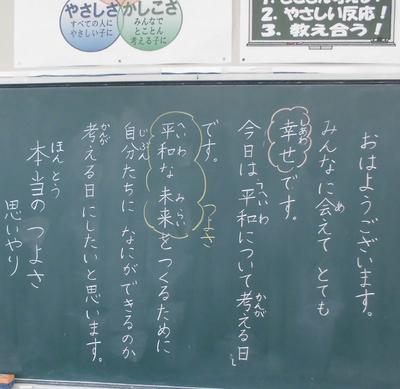 やさしさ
すべての人に
やさしい子に
かしこさ
みんなで
とことん
考える子に
2. やさしい反応!
3. 教え合う!
おはようございます。
みんなに会えて とても
幸せです。
今日は 平和について考える日と
です。
つよさ
平和な未来をつくるために
自分たちに なにができるのか
考える日にしたいと思います。
本当の つよさ
思いやり